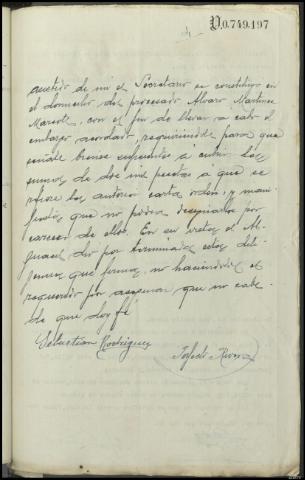 P.0.749.197
acuerdo de mi el Secretario se constituyo en
el domicilio del procesado Alvaro Martinez
con el fin de llevar a cabo el
embargo acordado, requiriendole para que
señale bienes suficientes á cubrir las
sumas de dos mil pesetas á que se
refiere la anterior carta orden, y mani-
festó que no podia designarlos por
carecer de ellos. En su vista el Al-
guacil dió por terminadas estas dili-
gencias que firma, no haciendolo el
requerido por asegurar que no sabe
de que doy fé
Sebastian Rodriguez
Rivera